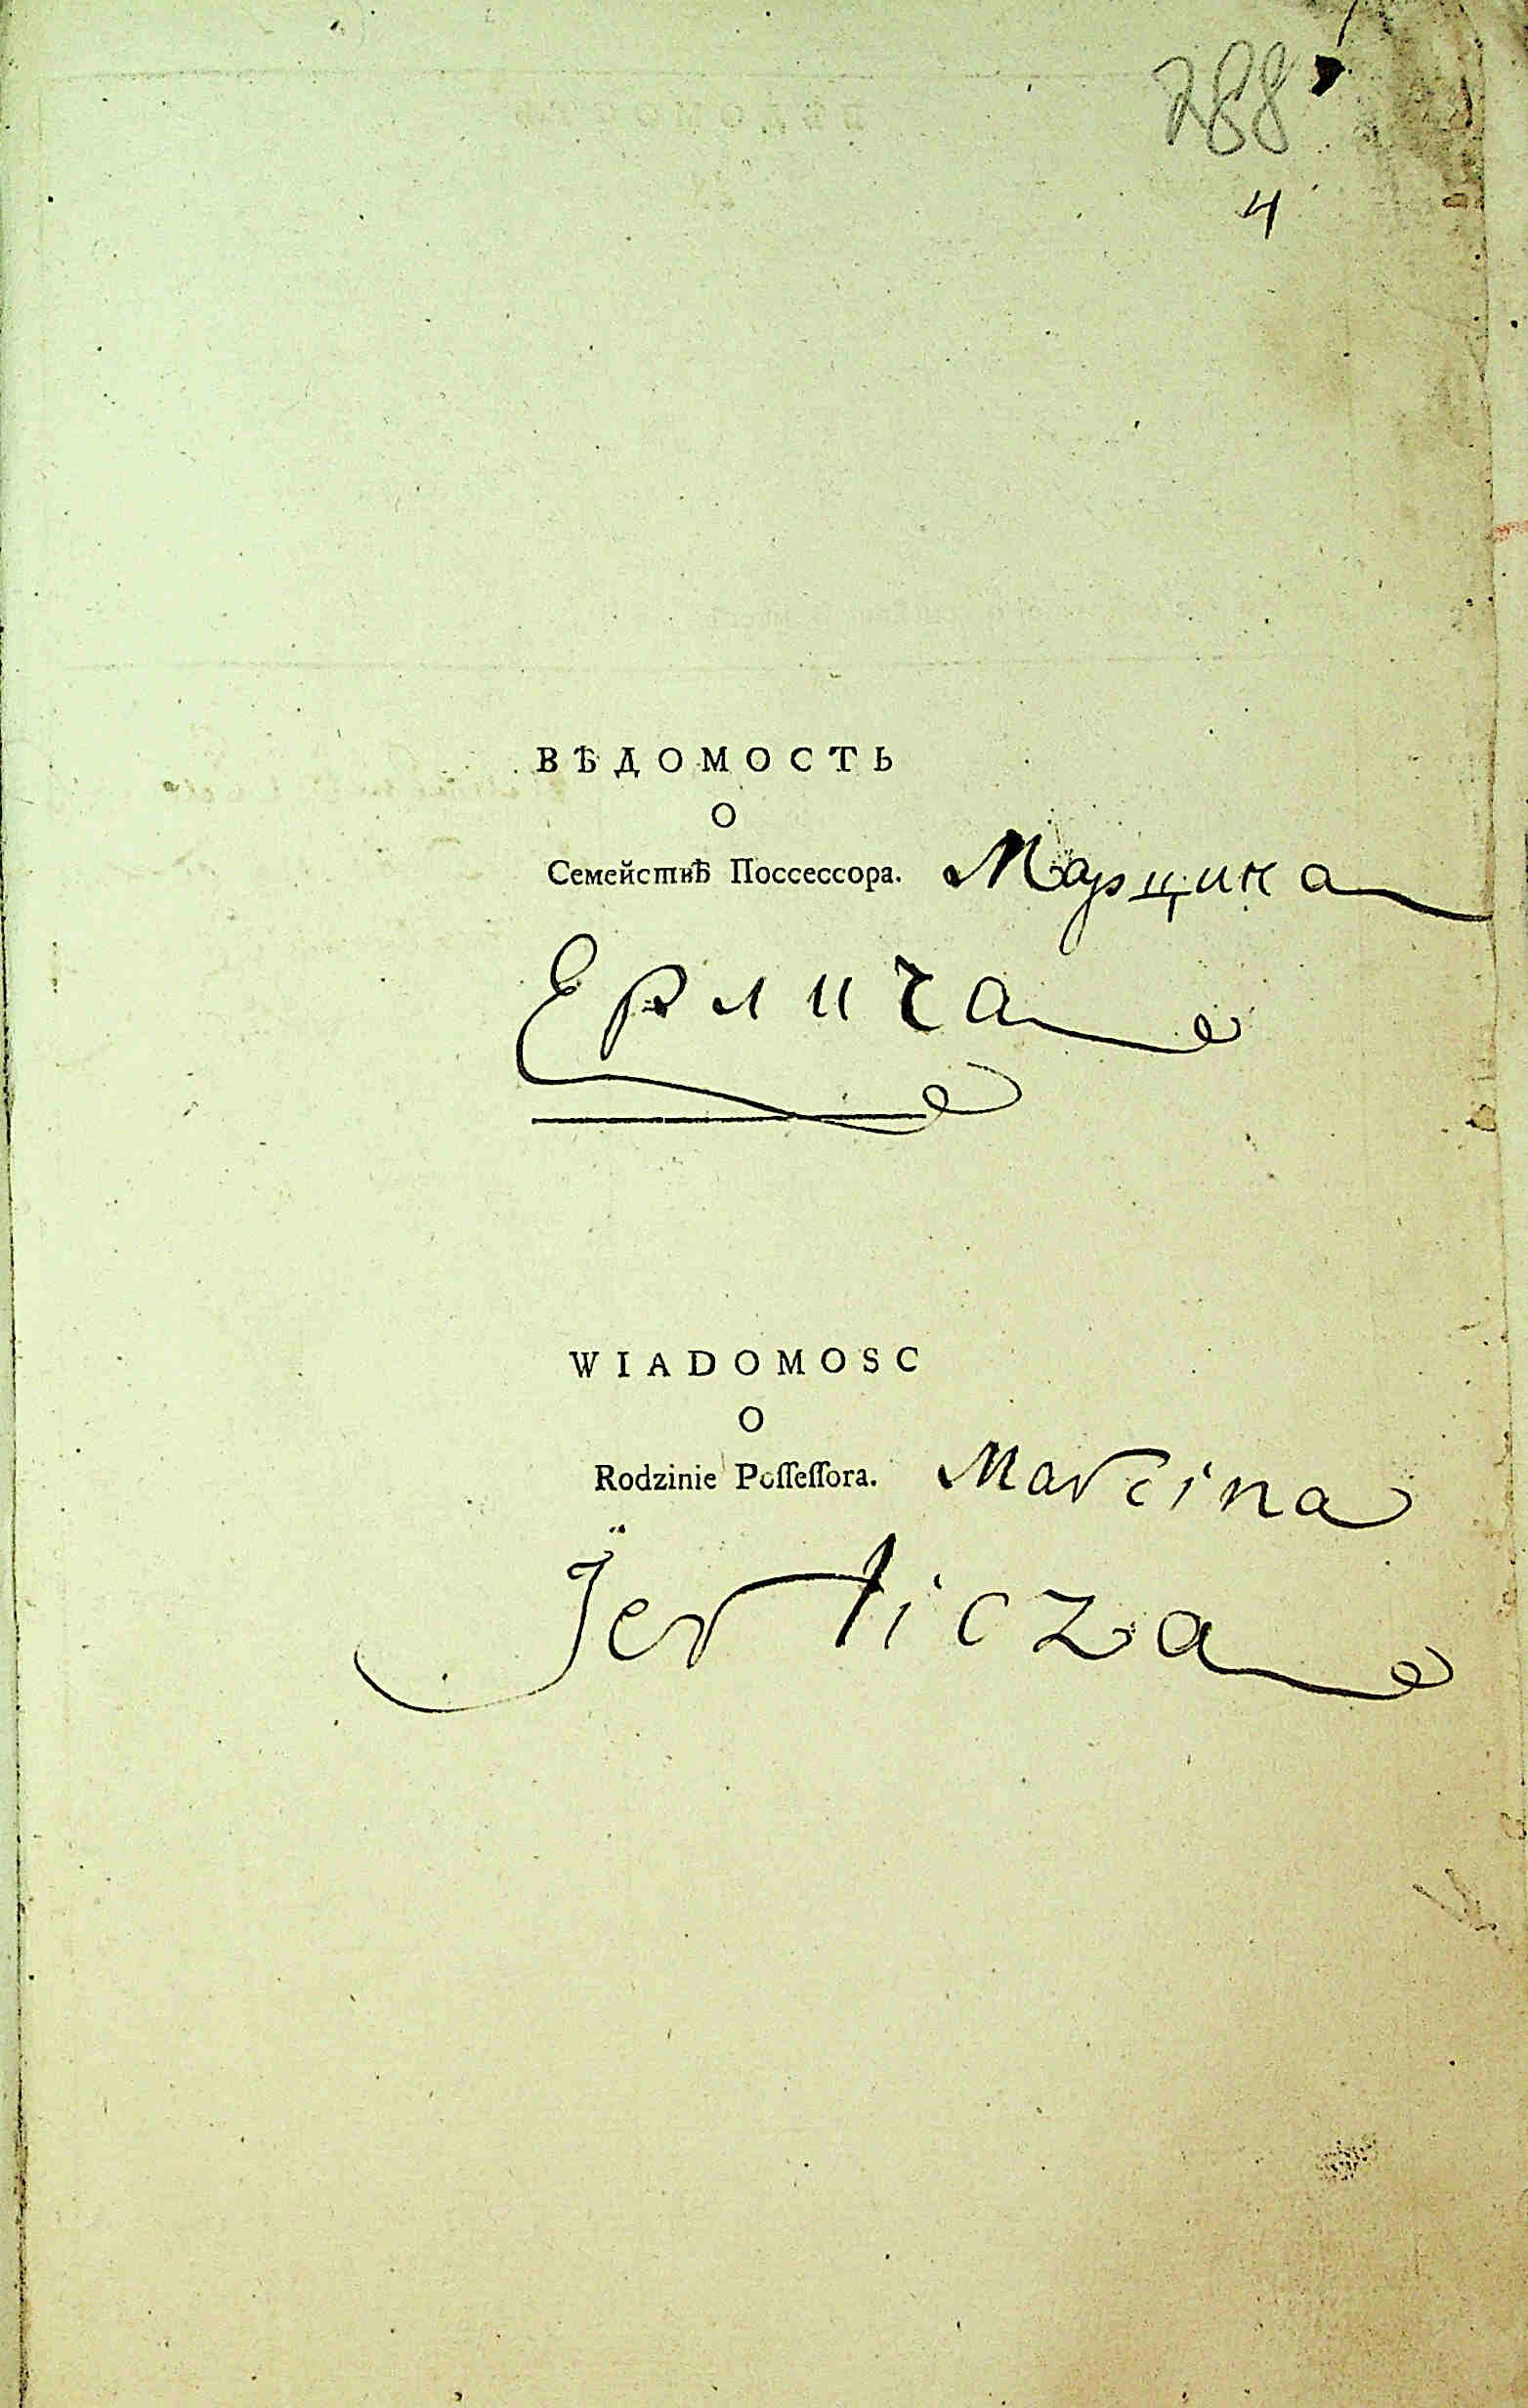 288
4
ВѢДОМОСТЬ
О
Семействѣ Поссессора. Марцина
Ерлича
WIADOMOSC
O
Rodzinie Poſſeſſora. Marcina
Jerlicza